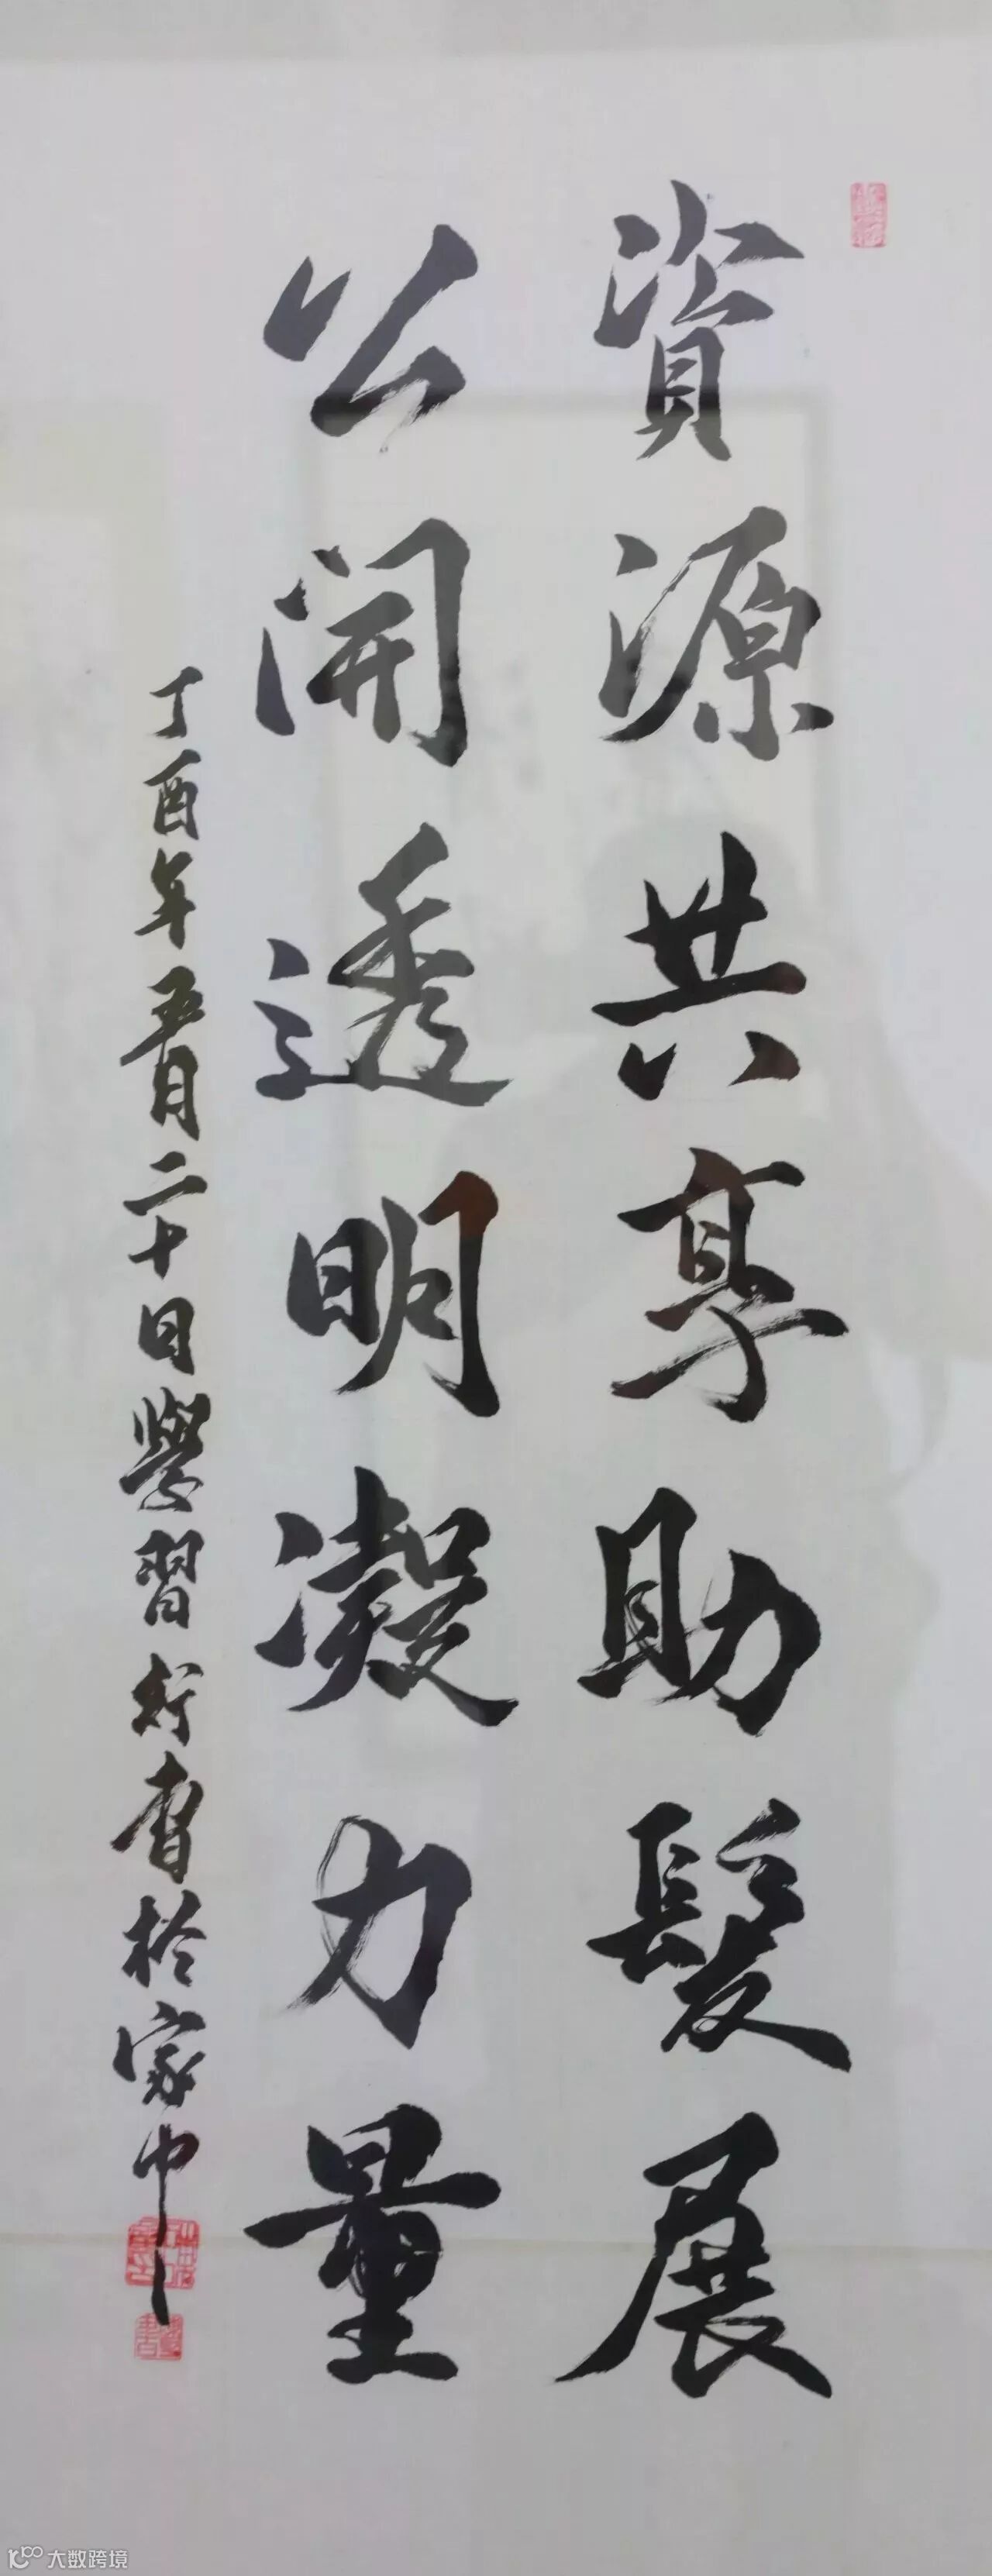 資源共享助髮展
公開透明凝力量
丁酉年五月二十日學習行書於家中
大数跨境